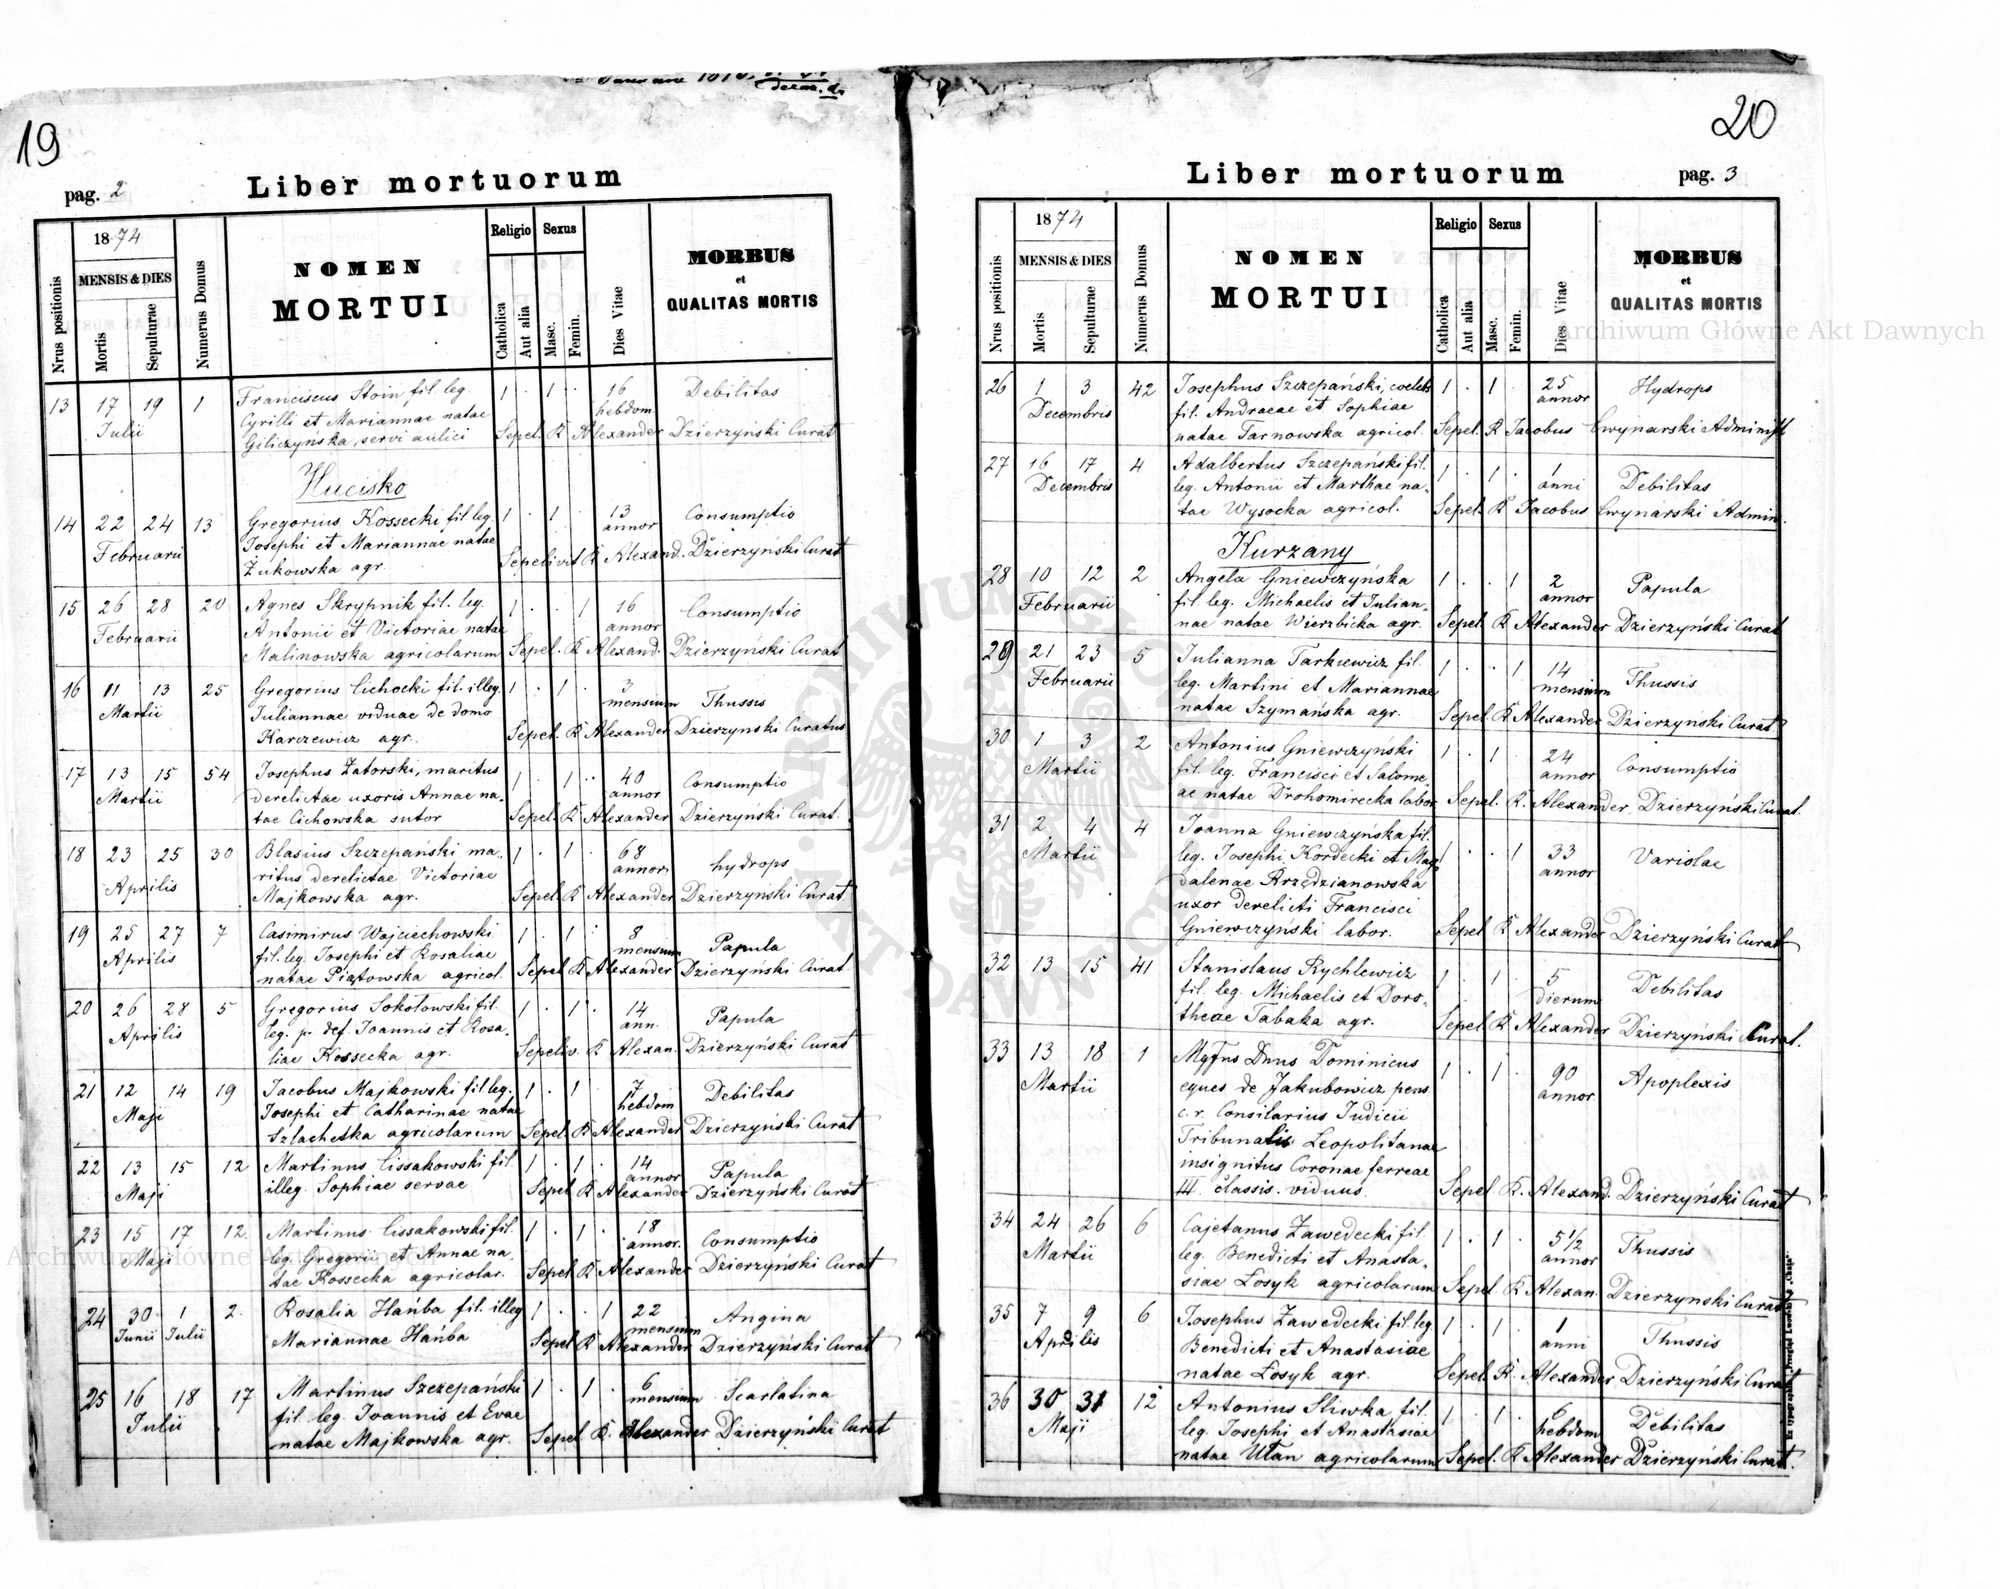 19
pag. 2
Liber mortuorum
Nrus positionis
1874
MENSIS & DIES
Mortis
Sepulturae
Numerus Domus
NOMEN
MORTUI
Religio
Catholica
Aut alia
Sexus
Masc.
Femin.
Dies Vitae
MORBUS
et
QUALITAS MORTIS
13 17 19 1 Franciscus Stoin fil. leg. 1 . 1 . 16 Debilitas
Julii Cyrilli et Mariannae natae hebdom
Giliczyńska, servi aulici Sepel. R Alexander Dzierzyński Curat
Hucisko
14 22 24 13 Gregorius Kossecki fil leg. 1 . 1 . 13 Consumptio
Februarii Josephi et Mariannae natae annor
Żukowska agr. Sepelivit R Alexand. Dzierzyński Curat
15 26 28 20 Agnes Skrypnik fil. leg. 1 . . 1 16 Consumptio
Februarii Antonii et Victoriae natae annor
Malinowska agricolarum Sepel. R Alexand. Dzierzyński Curat
16 11 13 25 Gregorius Cichocki fil. illeg. 1 . 1 . 3 Thussis
Martii Juliannae viduae de domo mensium
Karczewicz agr. Sepel. R Alexander Dzierzynski Curatus
17 13 15 54 Josephus Zatorski, maritus 1 . 1 . 40 Consumptio
Martii derelictae uxoris Annae na- annor
tae Cichowska sutor Sepel. R Alexander Dzierzyński Curat.
18 23 25 30 Blasius Szczepański ma- 1 . 1 . 68 hydrops
Aprilis ritus derelictae Victoriae annor.
Majkowska agr. Sepel. R Alexander Dzierzyński Curat.
19 25 27 7 Casimirus Wojciechowski 1 . 1 . 8 Papula
Aprilis fil. leg. Josephi et Rosaliae mensium
natae Piątowska agricol. Sepel R Alexander Dzierzyński Curat
20 26 28 5 Gregorius Sokołowski fil. 1 . 1 . 14 Papula
Aprilis leg. p. def. Joannis et Rosa- ann.
liae Kossecka agr. Sepeliv. R Alexan. Dzierzyński Curat
21 12 14 19 Jacobus Majkowski fil leg. 1 . 1 . 7 Debilitas
Maji Josephi et Catharinae natae hebdom
Szlachetka agricolarum Sepel. R Alexander Dzierzyński Curat
22 13 15 12 Martinus Cissakowski fil. 1 . 1 . 14 Papula
Maji illeg. Sophiae servae annor
Sepel R Alexander Dzierzyński Curat
23 15 17 12. Martinus Cissakowski fil. 1 . 1 . 18 Consumptio
Maji leg. Gregorii et Annae na- annor.
tae Kossecka agricolar. Sepel R Alexander Dzierzyński Curat
24 30 1 2. Rosalia Hańba fil. illeg 1 . . 1 22 Angina
Junii Julii Mariannae Hańba mensium
Sepel R Alexander Dzierzyński Curat
25 16 18 17 Martinus Szczepański 1 . 1 . 6 Scarlatina
Julii fil. leg. Joannis et Evae mensium
natae Majkowska agr. Sepel R. Alexander Dzierzyński Curat
20
Liber mortuorum
pag. 3
Nrus positionis
1874
MENSIS & DIES
Mortis
Sepulturae
Numerus Domus
NOMEN
MORTUI
Religio
Catholica
Aut alia
Sexus
Masc.
Femin.
Dies Vitae
MORBUS
et
QUALITAS MORTIS
26 1 3 42 Josephus Szczepański, coelebs 1 . 1 . 25 Hydrops
Decembris fil. Andraeae et Sophiae annor
natae Tarnowska agricol. Sepel. R Jacobus Cwynarski Administ
27 16 17 4 Adalbertus Szczepański fil. 1 . 1 . 1 Debilitas
Decembris leg. Antonii et Marthae na- anni
tae Wysocka agricol. Sepel. R Jacobus Cwynarski Admin.
Kurzany
28 10 12 2 Angela Gniewczyńska 1 . . 1 2 Papula
Februarii fil. leg. Michaelis et Julian- annor
nae natae Wierzbicka agr. Sepel. R Alexander Dzierzyński Curat
29 21 23 5 Julianna Tarkiewicz fil. 1 . . 1 14 Thussis
Februarii leg. Martini et Mariannae mensium
natae Szymańska agr. Sepel. R Alexander Dzierzyński Curat
30 1 3 2 Antonius Gniewczyński 1 . 1 . 24 Consumptio
Martii fil. leg. Francisci et Salome annor
ae natae Drohomirecka labor Sepel. R. Alexander Dzierzyński Curat.
31 2 4 4 Joanna Gniewczyńska fil. 1 . . 1 33 Variolae
Martii leg. Josephi Kordecki et Mag- annor
dalenae Rrzędzianowska
uxor derelicti Francisci
Gniewczyński labor. Sepel R Alexander Dzierzyński Curat
32 13 15 41 Stanislaus Rychlewicz 1 . 1 . 5 Debilitas
fil. leg. Michaelis et Doro- dierum
theae Tabaka agr. Sepel. R Alexander Dzierzyński Curat.
33 13 18 1 Mgfus Dnus Dominicus 1 . 1 . 90 Apoplexis
Martii eques de Jakubowicz pens. annor
c. r. Consilarius Judicii
Tribunalis Leopolitanae
insignitus Coronae ferreae
III classis. viduus. Sepel R. Alexand. Dzierzyński Curat
34 24 26 6 Cajetanus Zawedecki fil. 1 . 1 . 5 1/2 Thussis
Martii leg. Benedicti et Anasta- annor
siae Łosyk agricolarum Sepel. R Alexan. Dzierzyński Curat
35 7 9 6 Josephus Zawedecki fil. leg. 1 . 1 . 1 Thussis
Aprilis Benedicti et Anastasiae anni
natae Łosyk agr. Sepel. R. Alexander Dzierzyński Curat
36 30 31 12 Antonius Sliwka fil. 1 . 1 . 6 Debilitas
Maji leg. Josephi et Anastasiae hebdom
natae Ułan agricolarum Sepel. R Alexander Dzierzyński Curat.
Archiwum Główne Akt Dawnych
Archiwum Główne Akt Dawnych
ARCHIWUM GŁÓWNE AKT DAWNYCH